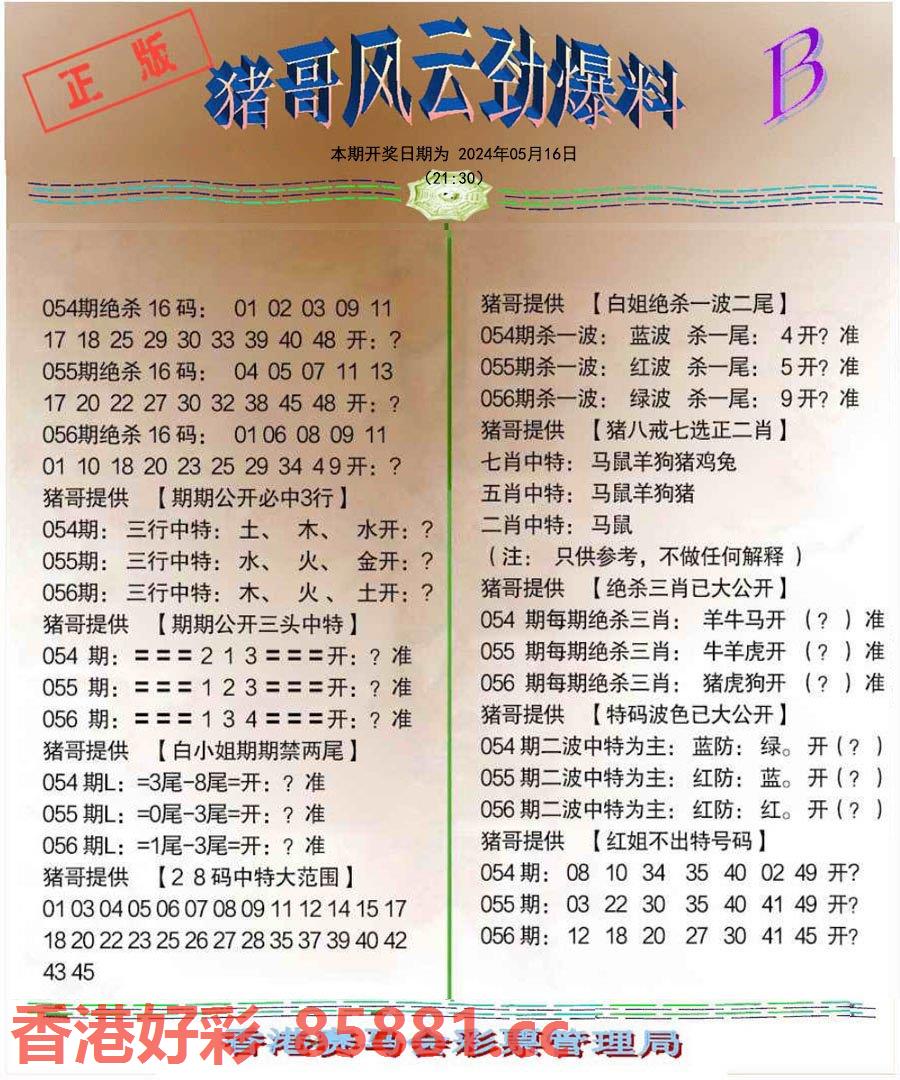 正版
猪哥风云劲爆料
B
本期开奖日期为 2024年05月16日
(21:30)
054期绝杀16码： 01 02 03 09 11
17 18 25 29 30 33 39 40 48 开：?
055期绝杀16码： 04 05 07 11 13
17 20 22 27 30 32 38 45 48 开：?
056期绝杀16码： 01 06 08 09 11
01 10 18 20 23 25 29 34 4 9 开：?
猪哥提供 【期期公开必中3行】
054期： 三行中特： 土、 木、 水开：?
055期： 三行中特： 水、 火、 金开：?
056期： 三行中特： 木、 火、 土开：?
猪哥提供 【期期公开三头中特】
054 期：===2 1 3===开：? 准
055 期：===1 2 3===开：? 准
056 期：===1 3 4===开：? 准
猪哥提供 【白小姐期期禁两尾】
054期L：=3尾-8尾=开：? 准
055期L：=0尾-3尾=开：? 准
056期L：=1尾-3尾=开：? 准
猪哥提供 【2 8码中特大范围】
01 03 04 05 06 07 08 09 11 12 14 15 17
18 20 22 23 25 26 27 28 35 37 39 40 42
43 45
猪哥提供 【白姐绝杀一波二尾】
054期杀一波： 蓝波 杀一尾： 4开? 准
055期杀一波： 红波 杀一尾： 5开? 准
056期杀一波： 绿波 杀一尾： 9开? 准
猪哥提供 【猪八戒七选正二肖】
七肖中特： 马鼠羊狗猪鸡兔
五肖中特： 马鼠羊狗猪
二肖中特： 马鼠
（注： 只供参考，不做任何解释）
猪哥提供 【绝杀三肖已大公开】
054 期每期绝杀三肖： 羊牛马开 （?）准
055 期每期绝杀三肖： 牛羊虎开 （?）准
056 期每期绝杀三肖： 猪虎狗开 （?）准
猪哥提供 【特码波色已大公开】
054期二波中特为主： 蓝防： 绿。 开(?)
055期二波中特为主： 红防： 蓝。 开(?)
056期二波中特为主： 红防： 红。 开(?)
猪哥提供 【红姐不出特号码】
054期： 08 10 34 35 40 02 49 开?
055期： 03 22 30 35 40 41 49 开?
056期： 12 18 20 27 30 41 45 开?
香港好彩 85881.cc
香港赛马会彩票管理局